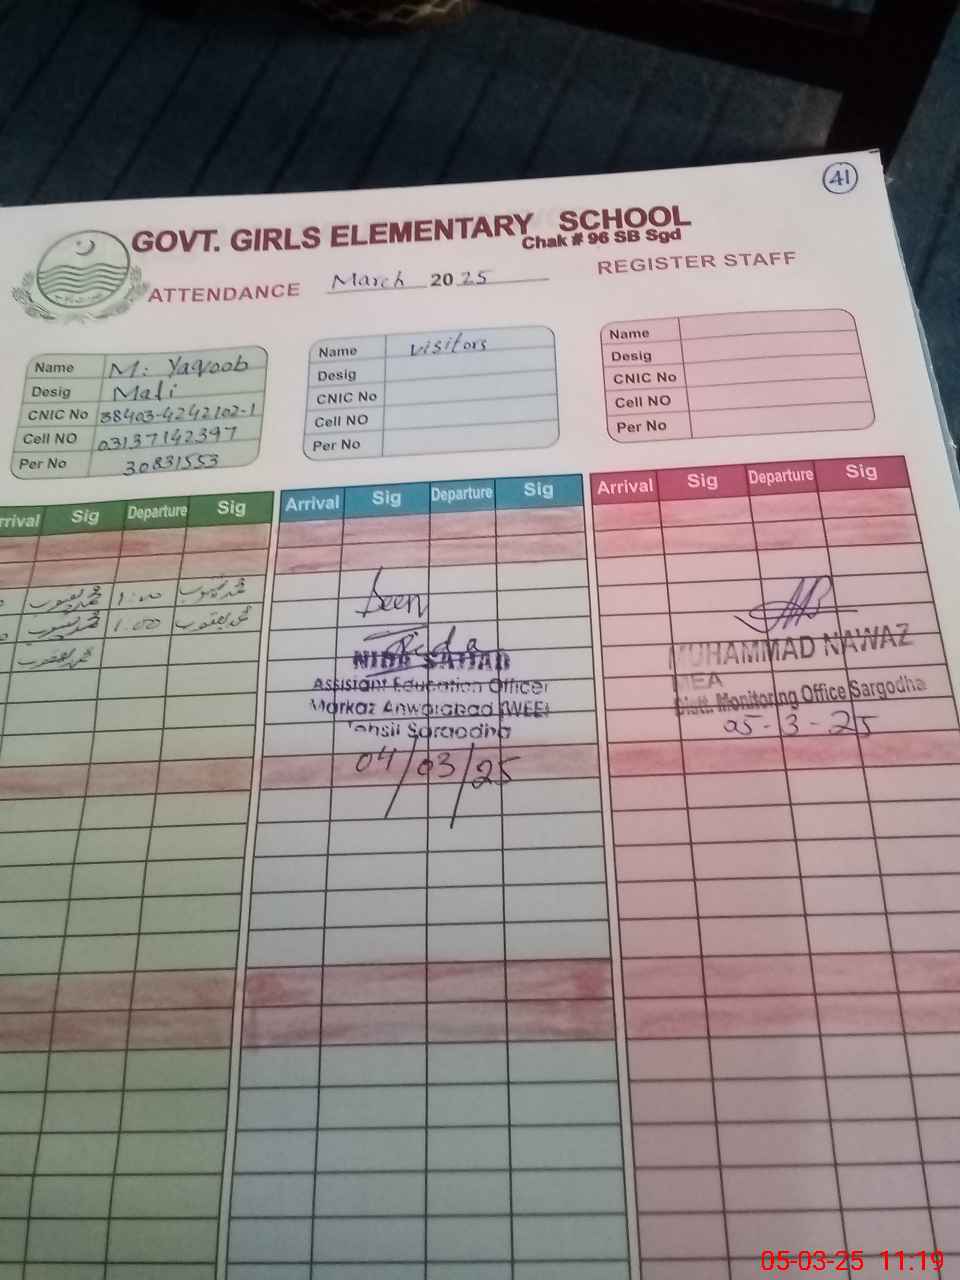 41
GOVT. GIRLS ELEMENTARY SCHOOL
Chak # 96 SB Sgd
ATTENDANCE March 2025 REGISTER STAFF
Name M: Yaqoob
Desig Mali
CNIC No 38403-4242102-1
Cell NO 03137142397
Per No 30831553
Name visitors
Desig
CNIC No
Cell NO
Per No
Name
Desig
CNIC No
Cell NO
Per No
rrival Sig Departure Sig
محمد یعقوب 1:00 محمد یعقوب
محمد یعقوب 1:00 محمد یعقوب
محمد یعقوب
Arrival Sig Departure Sig
Seen
Assistant Education Officer
Markaz Anwarabad (WEE)
Tehsil Sargodha
04/03/25
Arrival Sig Departure Sig
MUHAMMAD NAWAZ
MEA
Distt. Monitoring Office Sargodha
05-3-25
05-03-25 11:19